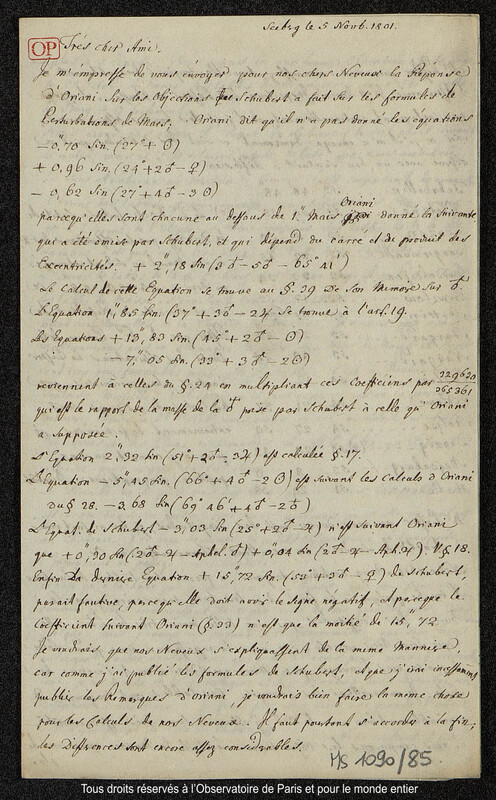 Seeberg le 5 Novb. 1801.
OP
Très cher Ami.
Je m'empresse de vous envoyer pour nos chers Neveux la Réponse
d'Oriani sur les Objections que Schubert a fait sur les formules de
Perturbations de Mars; Oriani dit qu'il n'a pas donné les equations
− 0",70 Sin. (27° + ☉)
+ 0,96 Sin. (24° + 2♂ − ♀)
− 0,62 Sin. (27° + 4♂ − 3☉)
parcequ'elles sont chacune au dessous de 1". Mais Oriani donne la suivante
qui a été omise par Schubert, et qui dépend du carré et du produit des
Excentricités. + 2",18 Sin (3♂ − 5♂ − 65° 41')
Le Calcul de cette Equation se trouve au §. 39 de Son Memoire sur ♂.
L'Equation 1",85 Sin. (37° + 3♂ − 2♃ se trouve à l'art. 19.
Les Equations + 13",83 Sin. (45° + 2♂ − ☉)
− 7",05 Sin. (33° + 3♂ − 2☉)
reviennent à celles du §. 24 en multipliant ces Coefficiens par 229620/265361
qui est le rapport de la masse de la ♂ prise par Schubert à celle qu'Oriani
a supposée.
L'Equation 2",32 Sin (51° + 2♂ − 3♃) est calculée §. 17.
L'Equation − 5",45 Sin. (66° + 4♂ − 2☉) est suivant les calculs d'Oriani
du §. 28. − 3,68 Sin (69° 46' + 4♂ − 2♂)
L'Equat. de Schubert − 3",03 Sin (25° + 2♂ − ♃) n'est suivant Oriani
que + 0",30 Sin (2♂ − ♃ − Aphel. ♂) + 0",04 Sin (2♂ − ♃ − Aph. ♃). V. §. 18.
Enfin La derniere Equation + 15",72 Sin. (53° + 3♂ − ♀) de Schubert,
parait fautive, parcequ'elle doit avoir le signe négatif, et parceque le
Coefficient suivant Oriani (§. 33) n'est que la moitié de 15",72
Je voudrais que nos Neveux s'expliquassent de la meme Manniere,
car comme j'ai publié les formules de Schubert, et que j'irai incessamment
publier les Remarques d'Oriani, je voudrais bien faire la meme chose
pour les Calculs de nos Neveux. Il faut pourtant s'accorder à la fin;
les Differences sont encore assez considerables.
MS 1090/85
Tous droits réservés à l'Observatoire de Paris et pour le monde entier